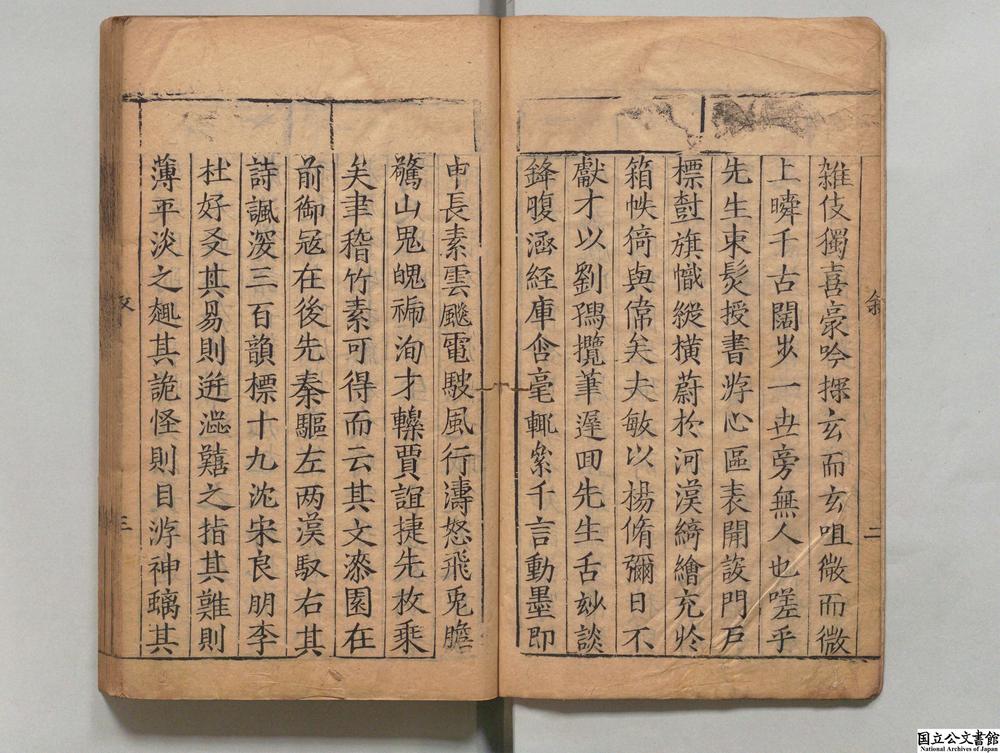 叙
雜伎獨喜豪吟探玄而玄咀微而微
上瞬千古闊步一世旁無人也嗟乎
先生束髮授書游心區表開設門戶
標尌旗幟縱橫蔚於河漢綺繪充於
箱帙倚與偉矣夫敏以楊脩彌日不
獻才以劉鴞攬筆遲回先生舌玅談
鋒腹涵經庫含毫輒絫千言動墨即
二
申長素雲颷電駛風行濤怒飛兎膽
驚山鬼魄褊洵才轢賈誼捷先枚乘
矣聿稽竹素可得而云其文漆園在
前御寇在後先秦驅左两漢馭右其
詩諷溲三百韻標十九沈宋良朋李
杜好爻其易則逬澁囏之指其難則
薄平淡之趣其詭怪則目游神螭其
三
国立公文書館
National Archives of Japan